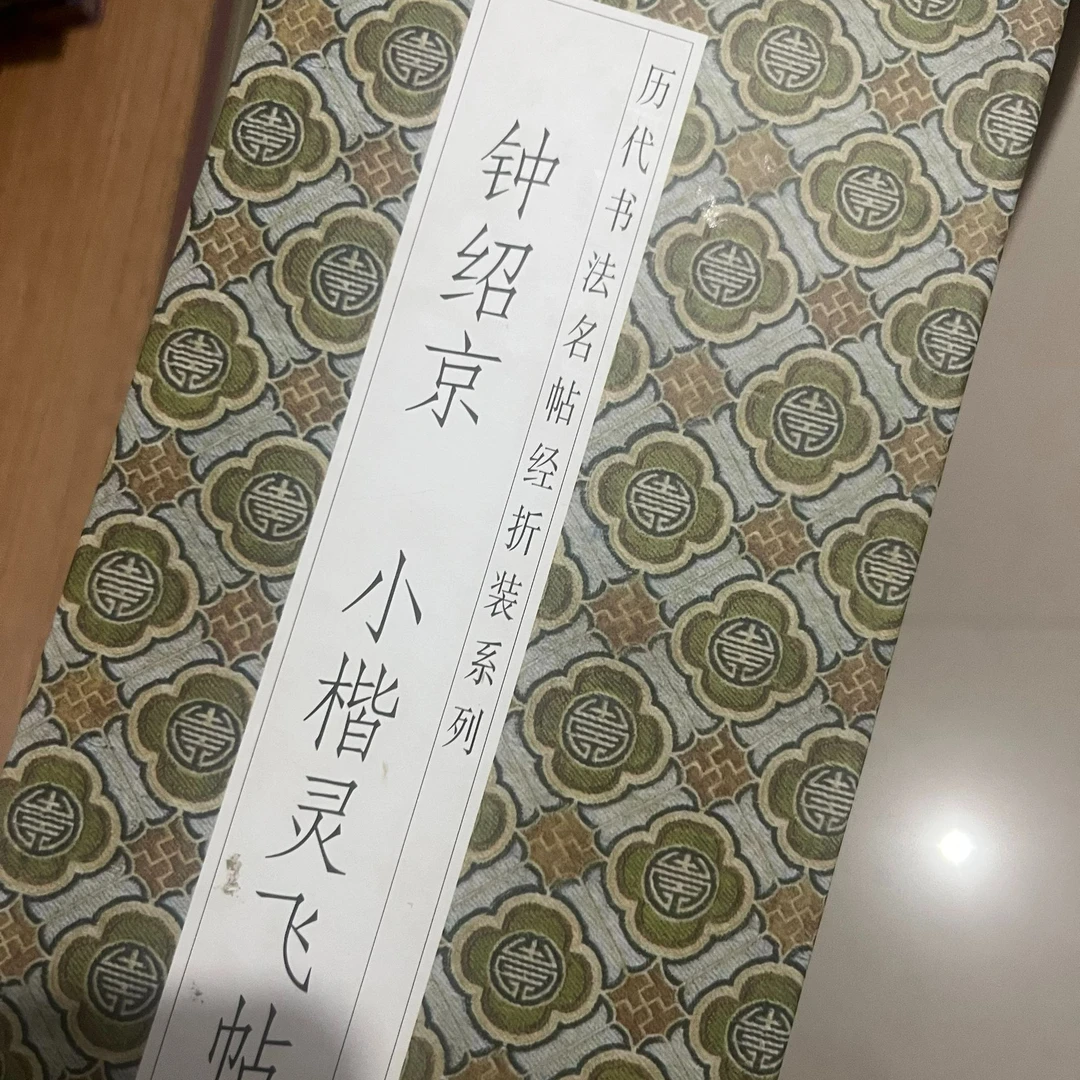 历代书法名帖经折装系列
钟绍京 小楷灵飞帖